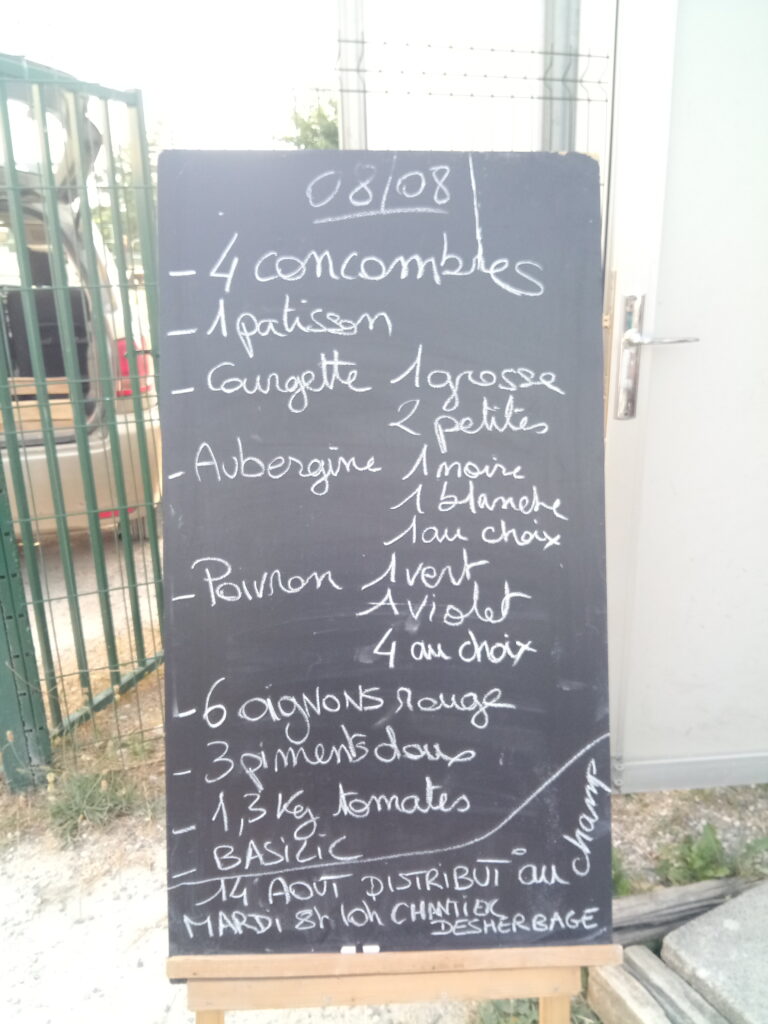 08/08
- 4 concombres
- 1 patisson
- Courgette 1 grosse
2 petites
- Aubergine 1 noire
1 blanche
1 au choix
- Poivron 1 vert
1 violet
4 au choix
- 6 oignons rouge
- 3 piments doux
- 1,3 Kg tomates
- BASILIC
14 AOUT DISTRIBUT° au champ
MARDI 8h 10h CHANTIER
DESHERBAGE